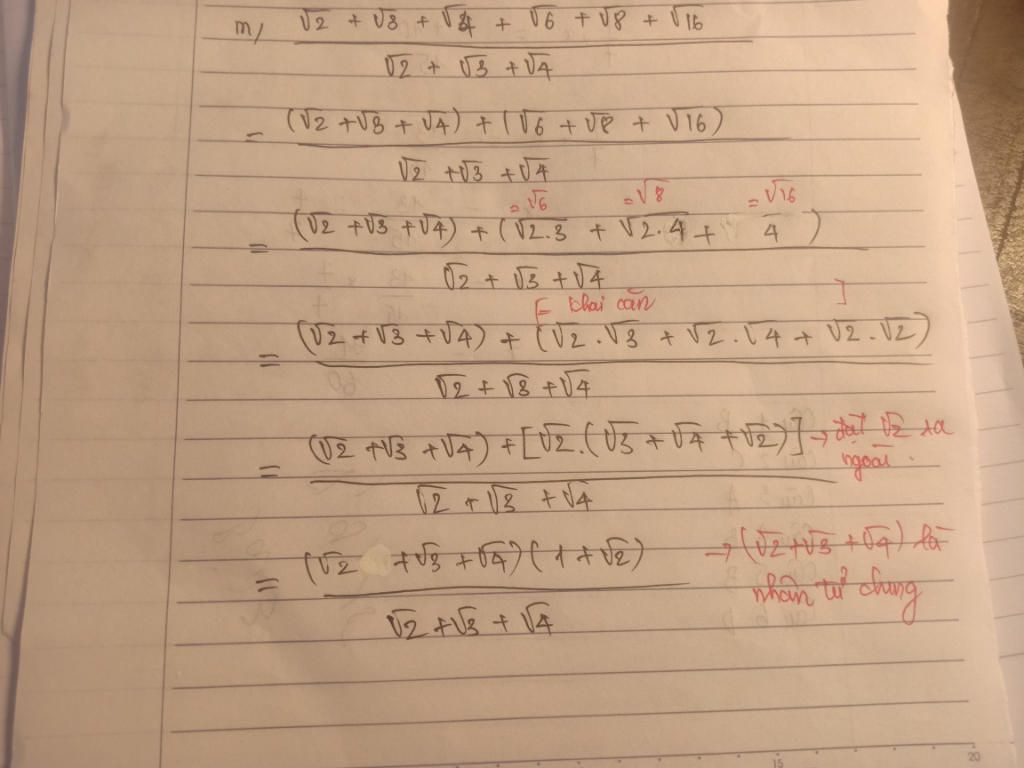 m/ √2 + √3 + √4 + √6 + √8 + √16
√2 + √3 + √4
= (√2 + √3 + √4) + (√6 + √8 + √16)
√2 + √3 + √4
= √6 = √8 = √16
= (√2 + √3 + √4) + (√2.3 + √2.4 + 4)
√2 + √3 + √4
[= khai căn ]
= (√2 + √3 + √4) + (√2.√3 + √2.√4 + √2.√2)
√2 + √3 + √4
= (√2 + √3 + √4) + [√2.(√3 + √4 + √2)] → đặt √2 ra
ngoài.
√2 + √3 + √4
= (√2 + √3 + √4)(1 + √2) → (√2 + √3 + √4) là
nhân tử chung
√2 + √3 + √4
15 20